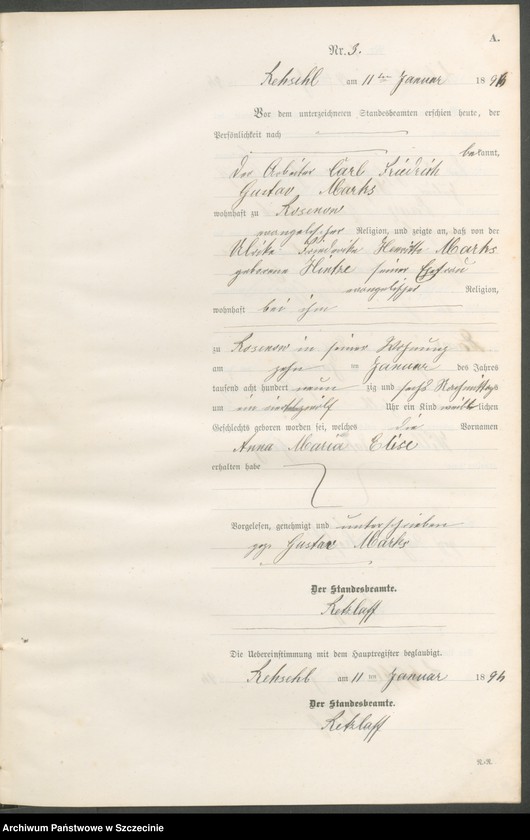 A.
Nr. 3.
am 11ten Januar 1896
Vor dem unterzeichneten Standesbeamten erschien heute, der
Persönlichkeit nach
bekannt,
der Arbeiter Carl Friedrich
Gustav Marks
wohnhaft zu Rosenow
evangelischer Religion, und zeigte an, daß von der
Ulrike Friederike Henriette Marks
geborene Hintze seiner Ehefrau
evangelischer Religion,
wohnhaft bei ihm
zu Rosenow in seiner Wohnung
am zehn ten Januar des Jahres
tausend acht hundert neun zig und sechs Nachmittags
um ein Uhr ein Kind weiblichen
Geschlechts geboren worden sei, welches die Vornamen
Anna Maria Elise
erhalten habe
Vorgelesen, genehmigt und unterschrieben
gez. Gustav Marks
Der Standesbeamte.
Retzlaff
Die Uebereinstimmung mit dem Hauptregister beglaubigt.
am 11ten Januar 1896
Der Standesbeamte.
Retzlaff
Archiwum Państwowe w Szczecinie